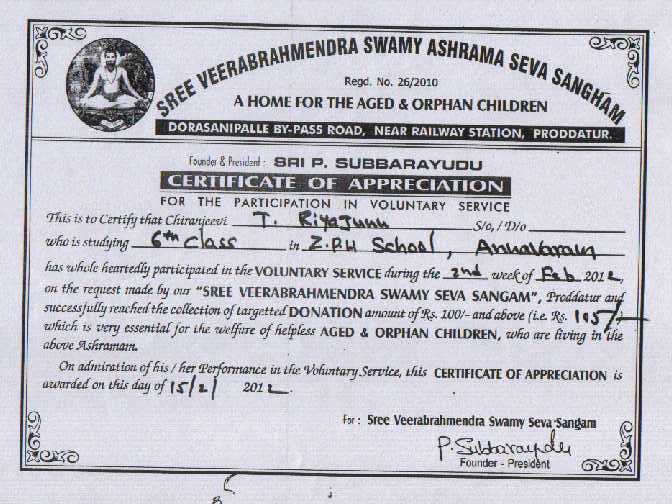 SREE VEERABRAHMENDRA SWAMY ASHRAMA SEVA SANGHAM
Regd. No. 26/2010
A HOME FOR THE AGED & ORPHAN CHILDREN
DORASANIPALLE BY-PASS ROAD, NEAR RAILWAY STATION, PRODDATUR.
Founder & President : SRI P. SUBBARAYUDU
CERTIFICATE OF APPRECIATION
FOR THE PARTICIPATION IN VOLUNTARY SERVICE
This is to Certify that Chiranjeevi T. Riyajunu S/o, / D/o
who is studying 6th Class in Z.P.H School, Annavaram
has whole heartedly participated in the VOLUNTARY SERVICE during the 2nd week of Feb 2012,
on the request made by our "SREE VEERABRAHMENDRA SWAMY SEVA SANGAM", Proddatur and
successfully reached the collection of targetted DONATION amount of Rs. 100/- and above (i.e. Rs. 105/-)
which is very essential for the welfare of helpless AGED & ORPHAN CHILDREN, who are living in the
above Ashramam.
On admiration of his / her Performance in the Voluntary Service, this CERTIFICATE OF APPRECIATION is
awarded on this day of 15/2/ 2012.
For : Sree Veerabrahmendra Swamy Seva Sangam
P. Subbarayudu
Founder - President